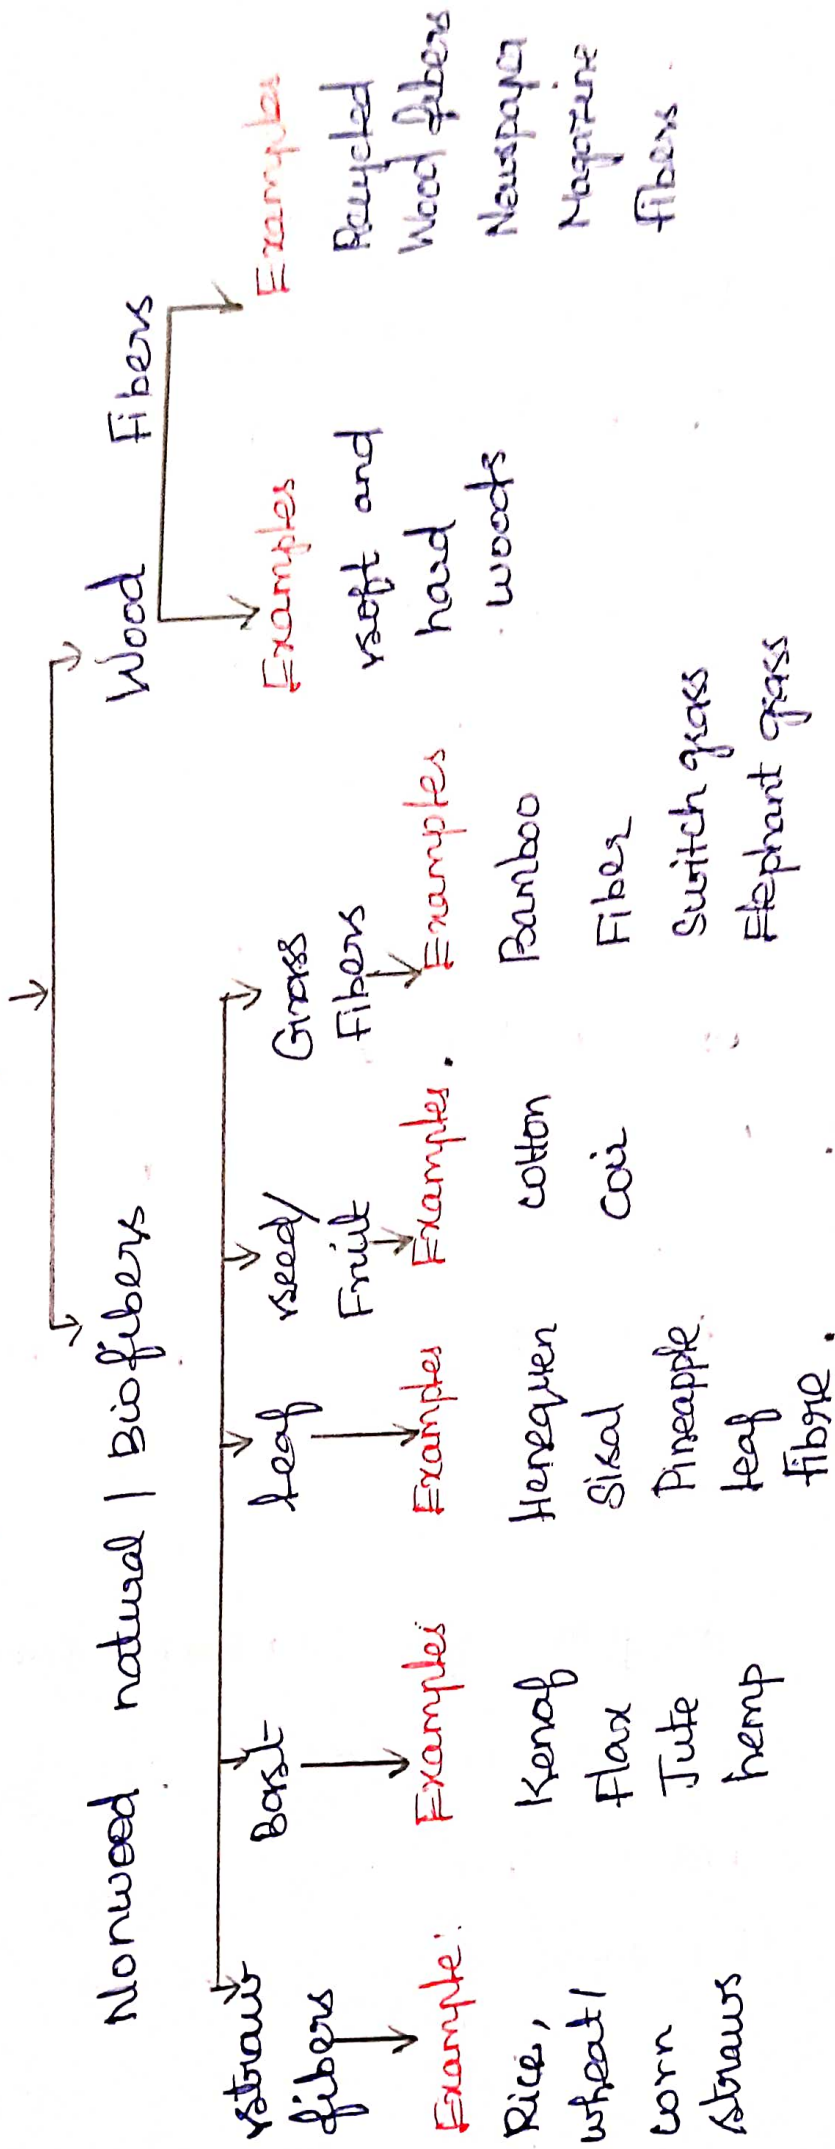 Nonwood natural | Biofibers
Wood Fibers
straw
fibers
Example:
Rice,
wheat/
corn
straws
Bast
Examples
Kenaf
Flax
Jute
hemp
Leaf
Examples
Henequen
Sisal
Pineapple
leaf
fibre.
seed/
Fruit
Examples.
cotton
coir
Grass
Fibers
Examples
Bamboo
Fiber
Switch grass
Elephant grass
Examples
soft and
hard
woods
Examples
Recycled
Wood fibers
Newspaper
Magazine
fibers.